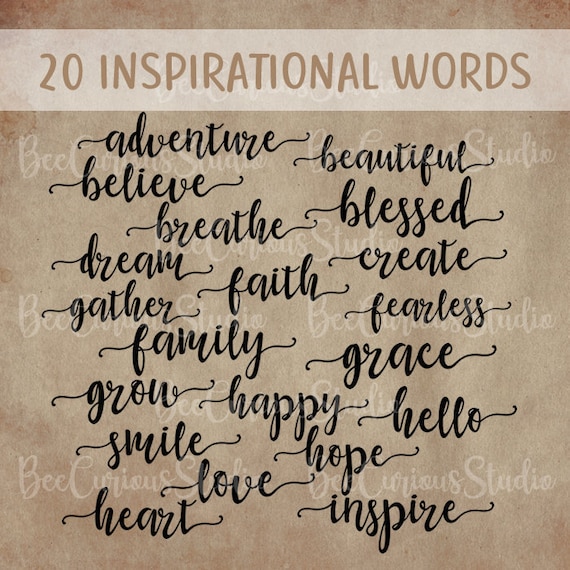 20 INSPIRATIONAL WORDS
adventure
beautiful
believe
blessed
breathe
dream
create
faith
gather
fearless
family
grace
grow
happy
hello
smile
hope
love
heart
inspire
BeeCuriousStudio BeeCuriousStudio
BeeCuriousStudio BeeCuriousStudio
BeeCuriousStudio BeeCuriousStudio
BeeCuriousStudio BeeCuriousStudio
BeeCuriousStudio BeeCuriousStudio